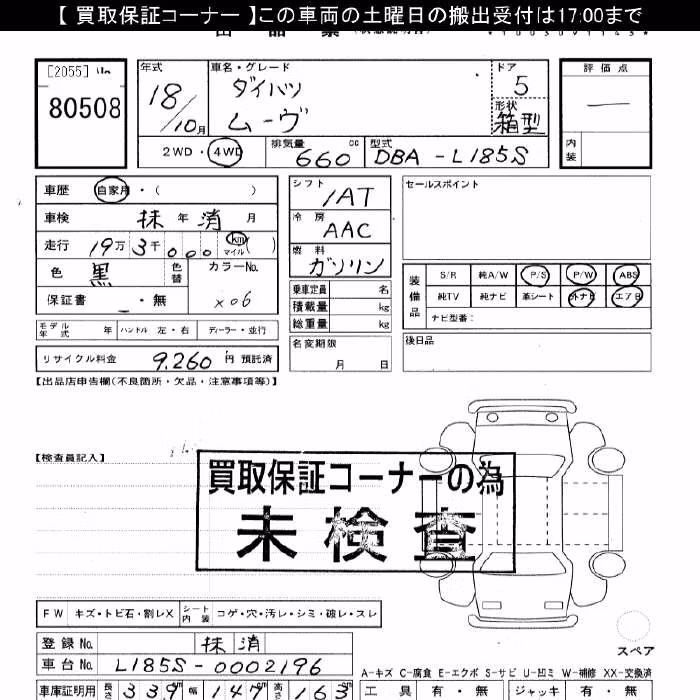 【 買取保証コーナー 】この車両の土曜日の搬出受付は17:00まで
[2055]
80508
年式 18/10月
車名・グレード ダイハツ ムーヴ
ドア 5
形状 箱型
評価点 —
内装
2WD・4WD
排気量 660 cc
型式 DBA-L185S
車歴 自家用・( )
車検 抹 年 消 月
走行 19万 3千 000 km マイル( )
色 黒 色替
カラーNo. X06
保証書 ・無
シフト IAT
冷房 AAC
燃料 ガソリン
乗車定員 名
積載量 kg
総重量 kg
名変期限 月 日
セールスポイント
装備品
S/R 純A/W P/S P/W ABS
純TV 純ナビ 革シート 外ナビ エアB
ナビ型番:
後日品
モデル年式 年 ハンドル 左・右 ディーラー・並行
リサイクル料金 9,260 円 預託済
【出品店申告欄(不良箇所・欠品・注意事項等)】
【検査員記入】
買取保証コーナーの為
未検査
FW キズ・トビ石・割レX シート内装 コゲ・穴・汚レ・シミ・破レ・スレ
登録No. 抹消
車台No. L185S-0002196
車庫証明用 長さ 339 幅 147 高さ 163
スペア
A-キズ C-腐食 E-エクボ S-サビ U-凹ミ W-補修 XX-交換済
工具 有・無 ジャッキ 有・無